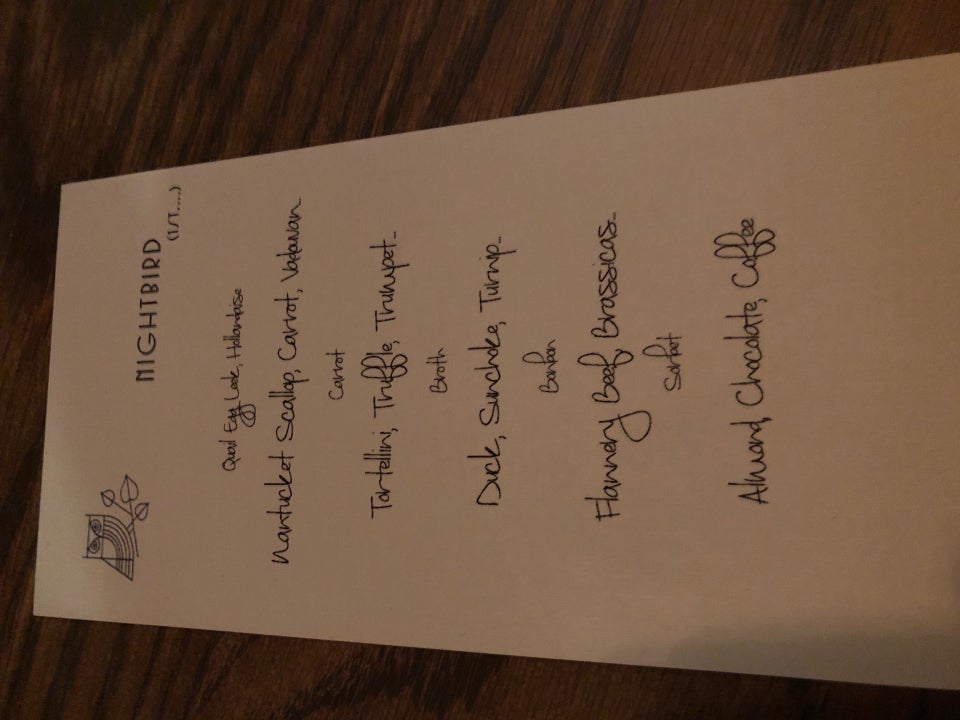 NIGHTBIRD
Quail Egg Leek, Hollandaise
Nantucket Scallop, Carrot, Vadouvan
Carrot
Tortellini, Truffle, Trumpet
Broth
Duck, Sunchoke, Turnip
Bonbon
Flannery Beef, Brassicas
Sorbet
Almond, Chocolate, Coffee